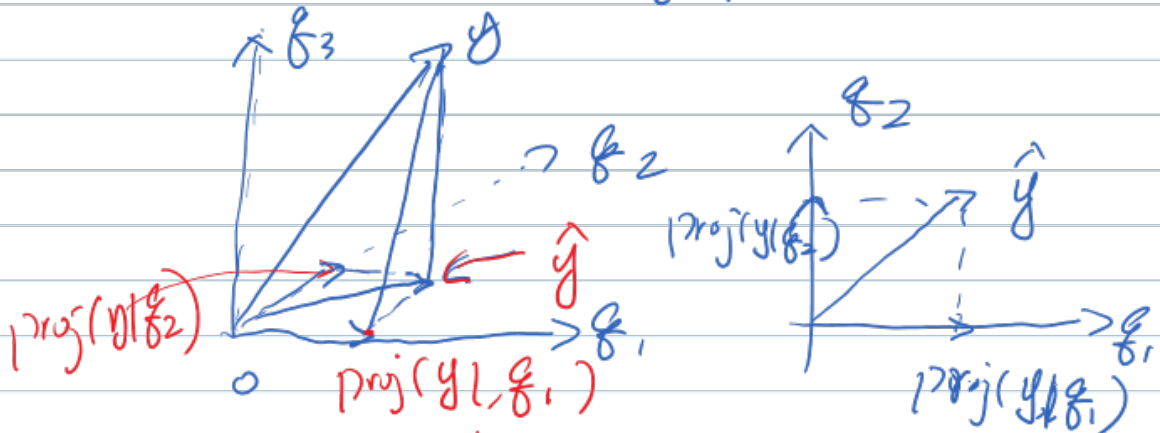 q3
y
q2
ŷ
proj(y|q2)
q1
0
proj(y|,q1)
q2
ŷ
proj(y|q2)
q1
proj(y|q1)